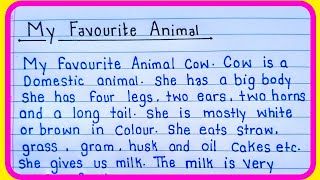 My Favourite Animal
My Favourite Animal Cow. Cow is a
Domestic animal. She has a big body
She has four legs, two ears, two horns
and a long tail. She is mostly white
or brown in colour. She eats straw,
grass, gram, husk and oil cakes etc.
She gives us milk. The milk is very